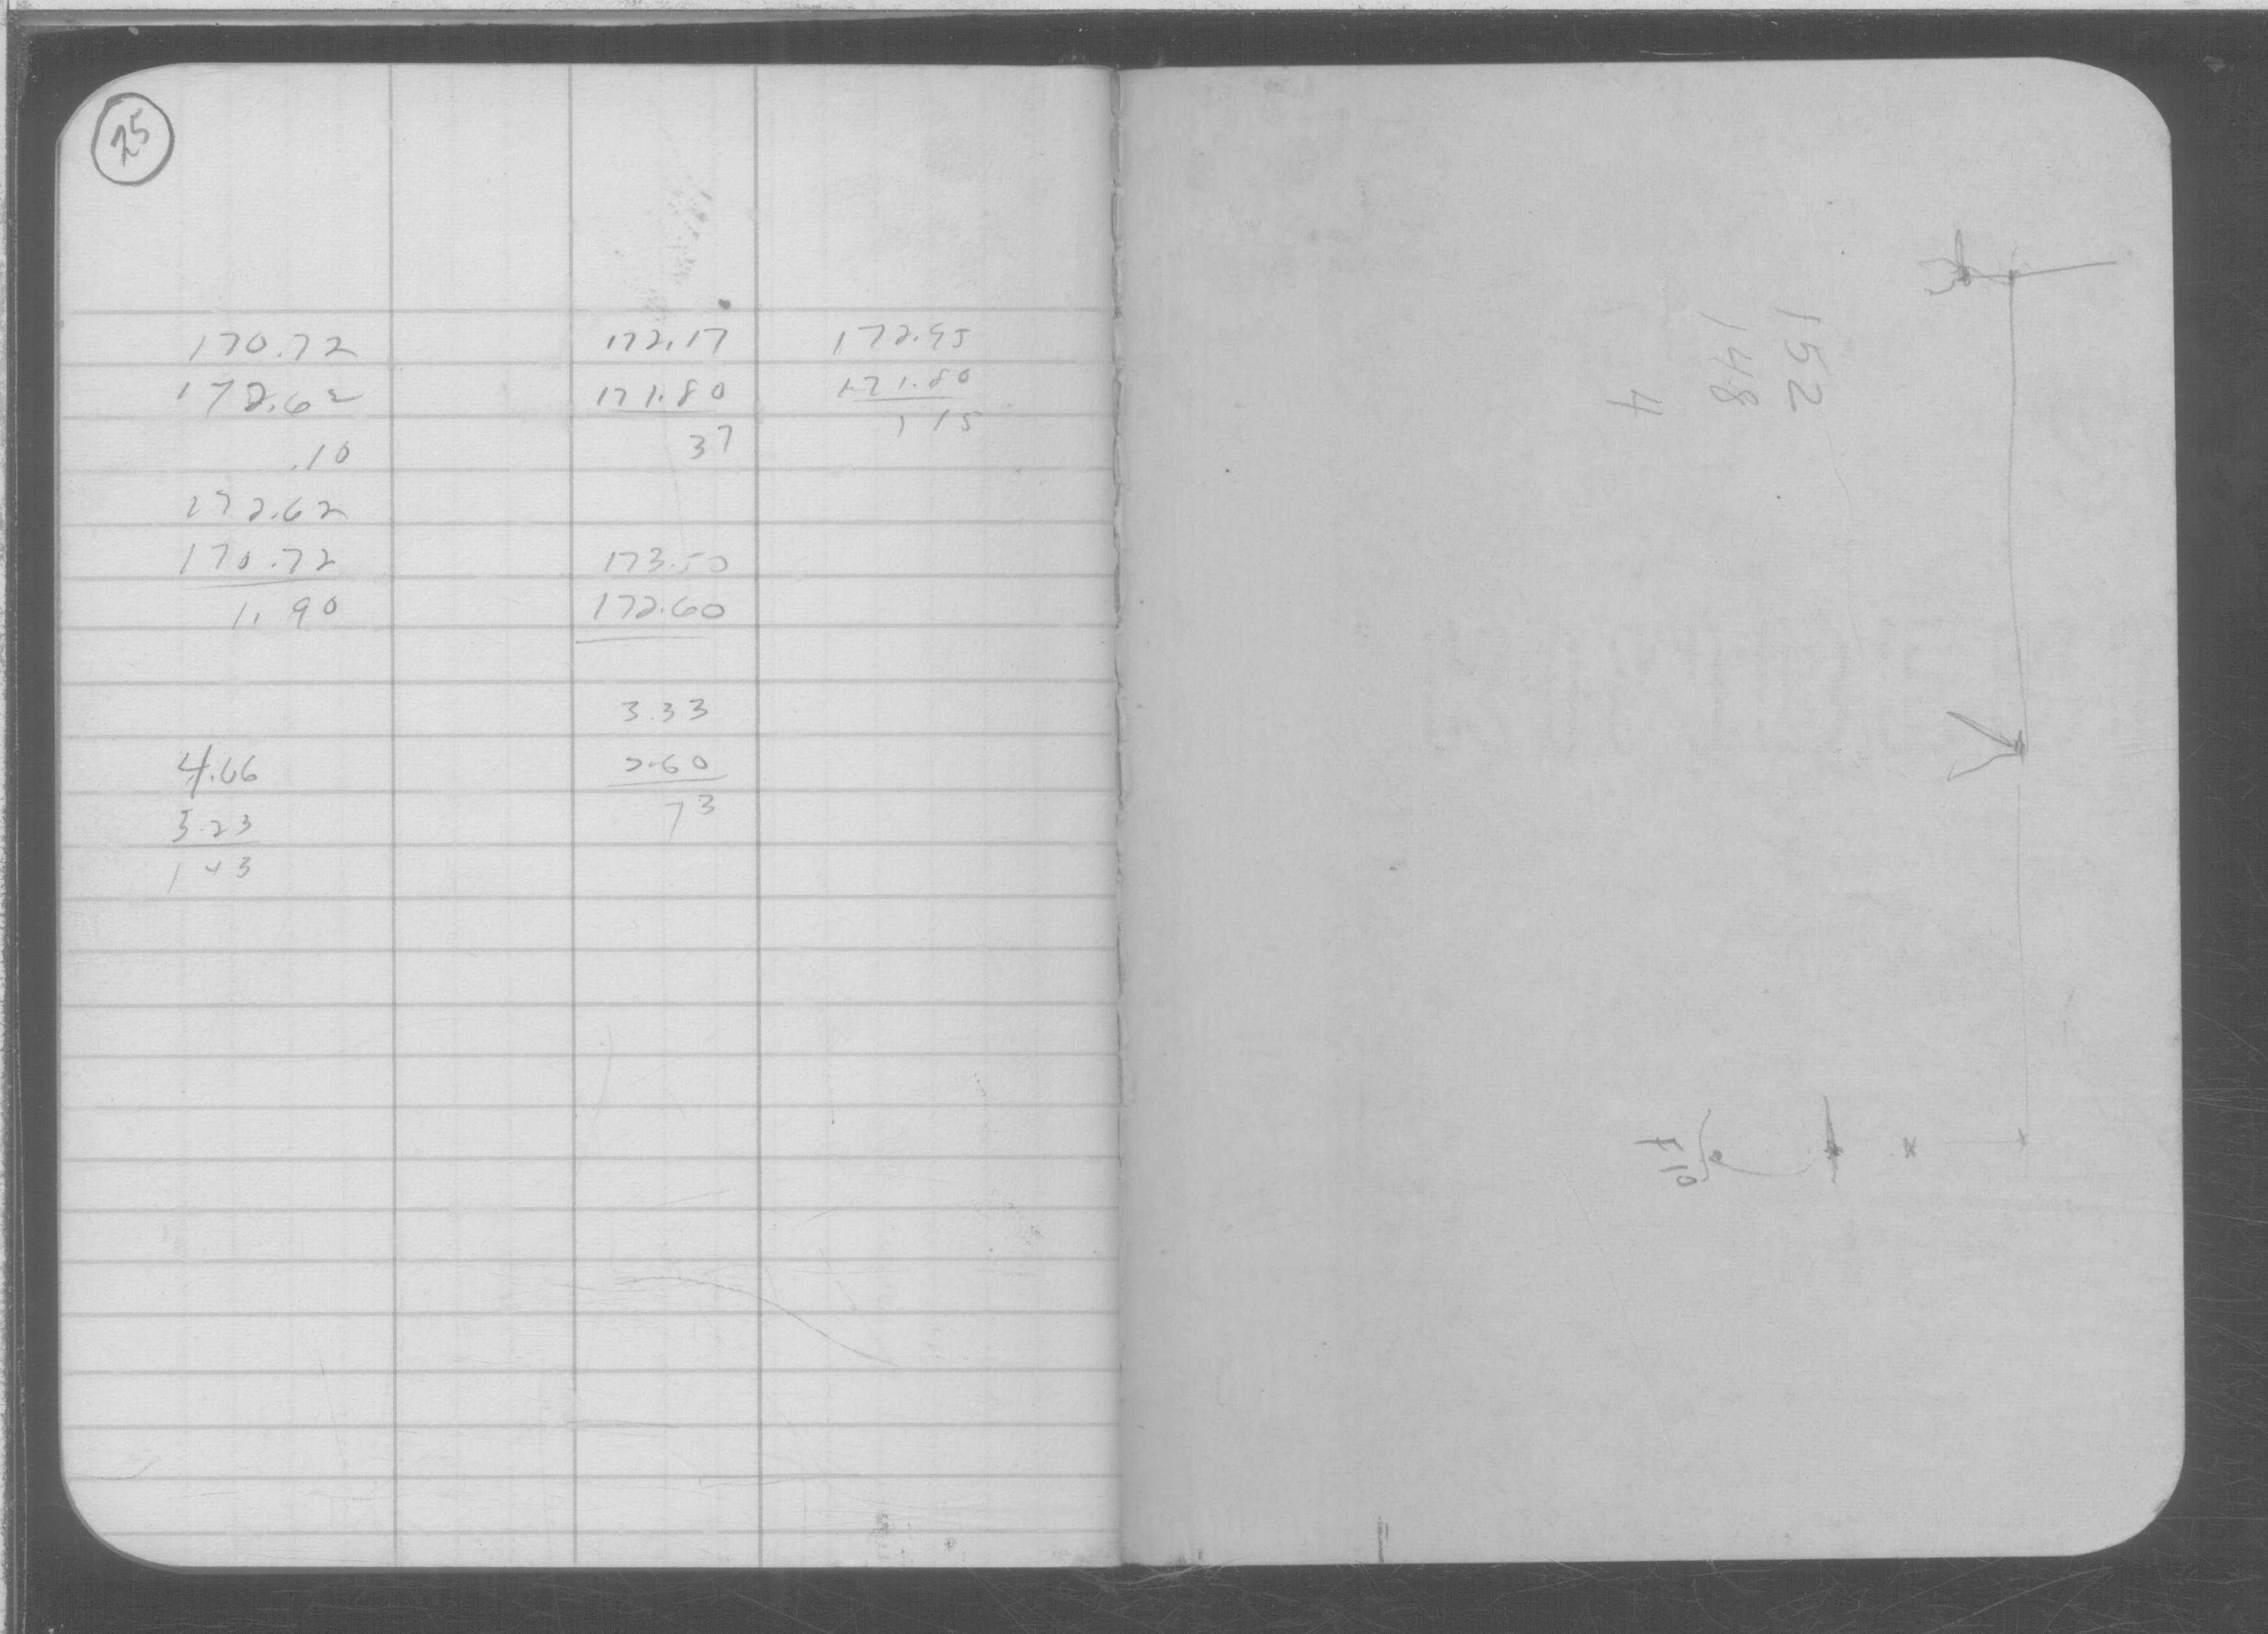 25
170.72 172.17 172.95
172.62 171.80 171.80
.10 37 1 15
172.62
170.72 173.50
1.90 172.60
3.33
4.66 2.60
3.23 73
1 43
152
148
4
F10